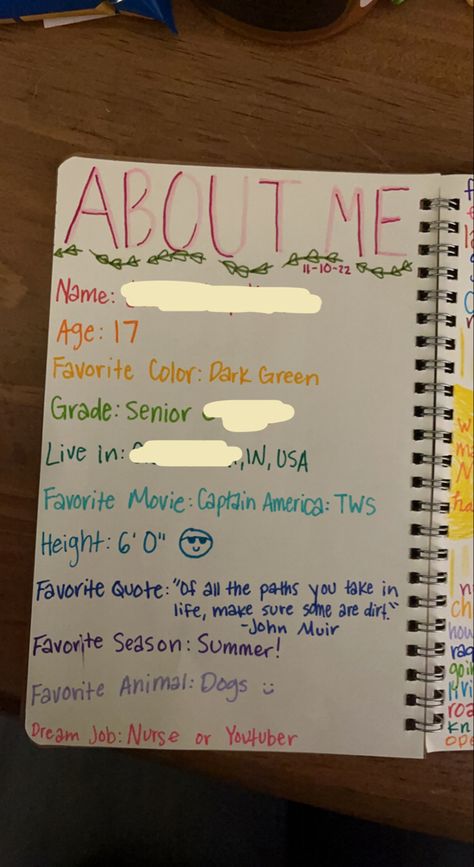 ABOUT ME
11-10-22
Name:
Age: 17
Favorite Color: Dark Green
Grade: Senior
Live in: , IN, USA
Favorite Movie: Captain America: TWS
Height: 6'0"
Favorite Quote: "Of all the paths you take in
life, make sure some are dirt."
-John Muir
Favorite Season: Summer!
Favorite Animal: Dogs :)
Dream Job: Nurse or Youtuber